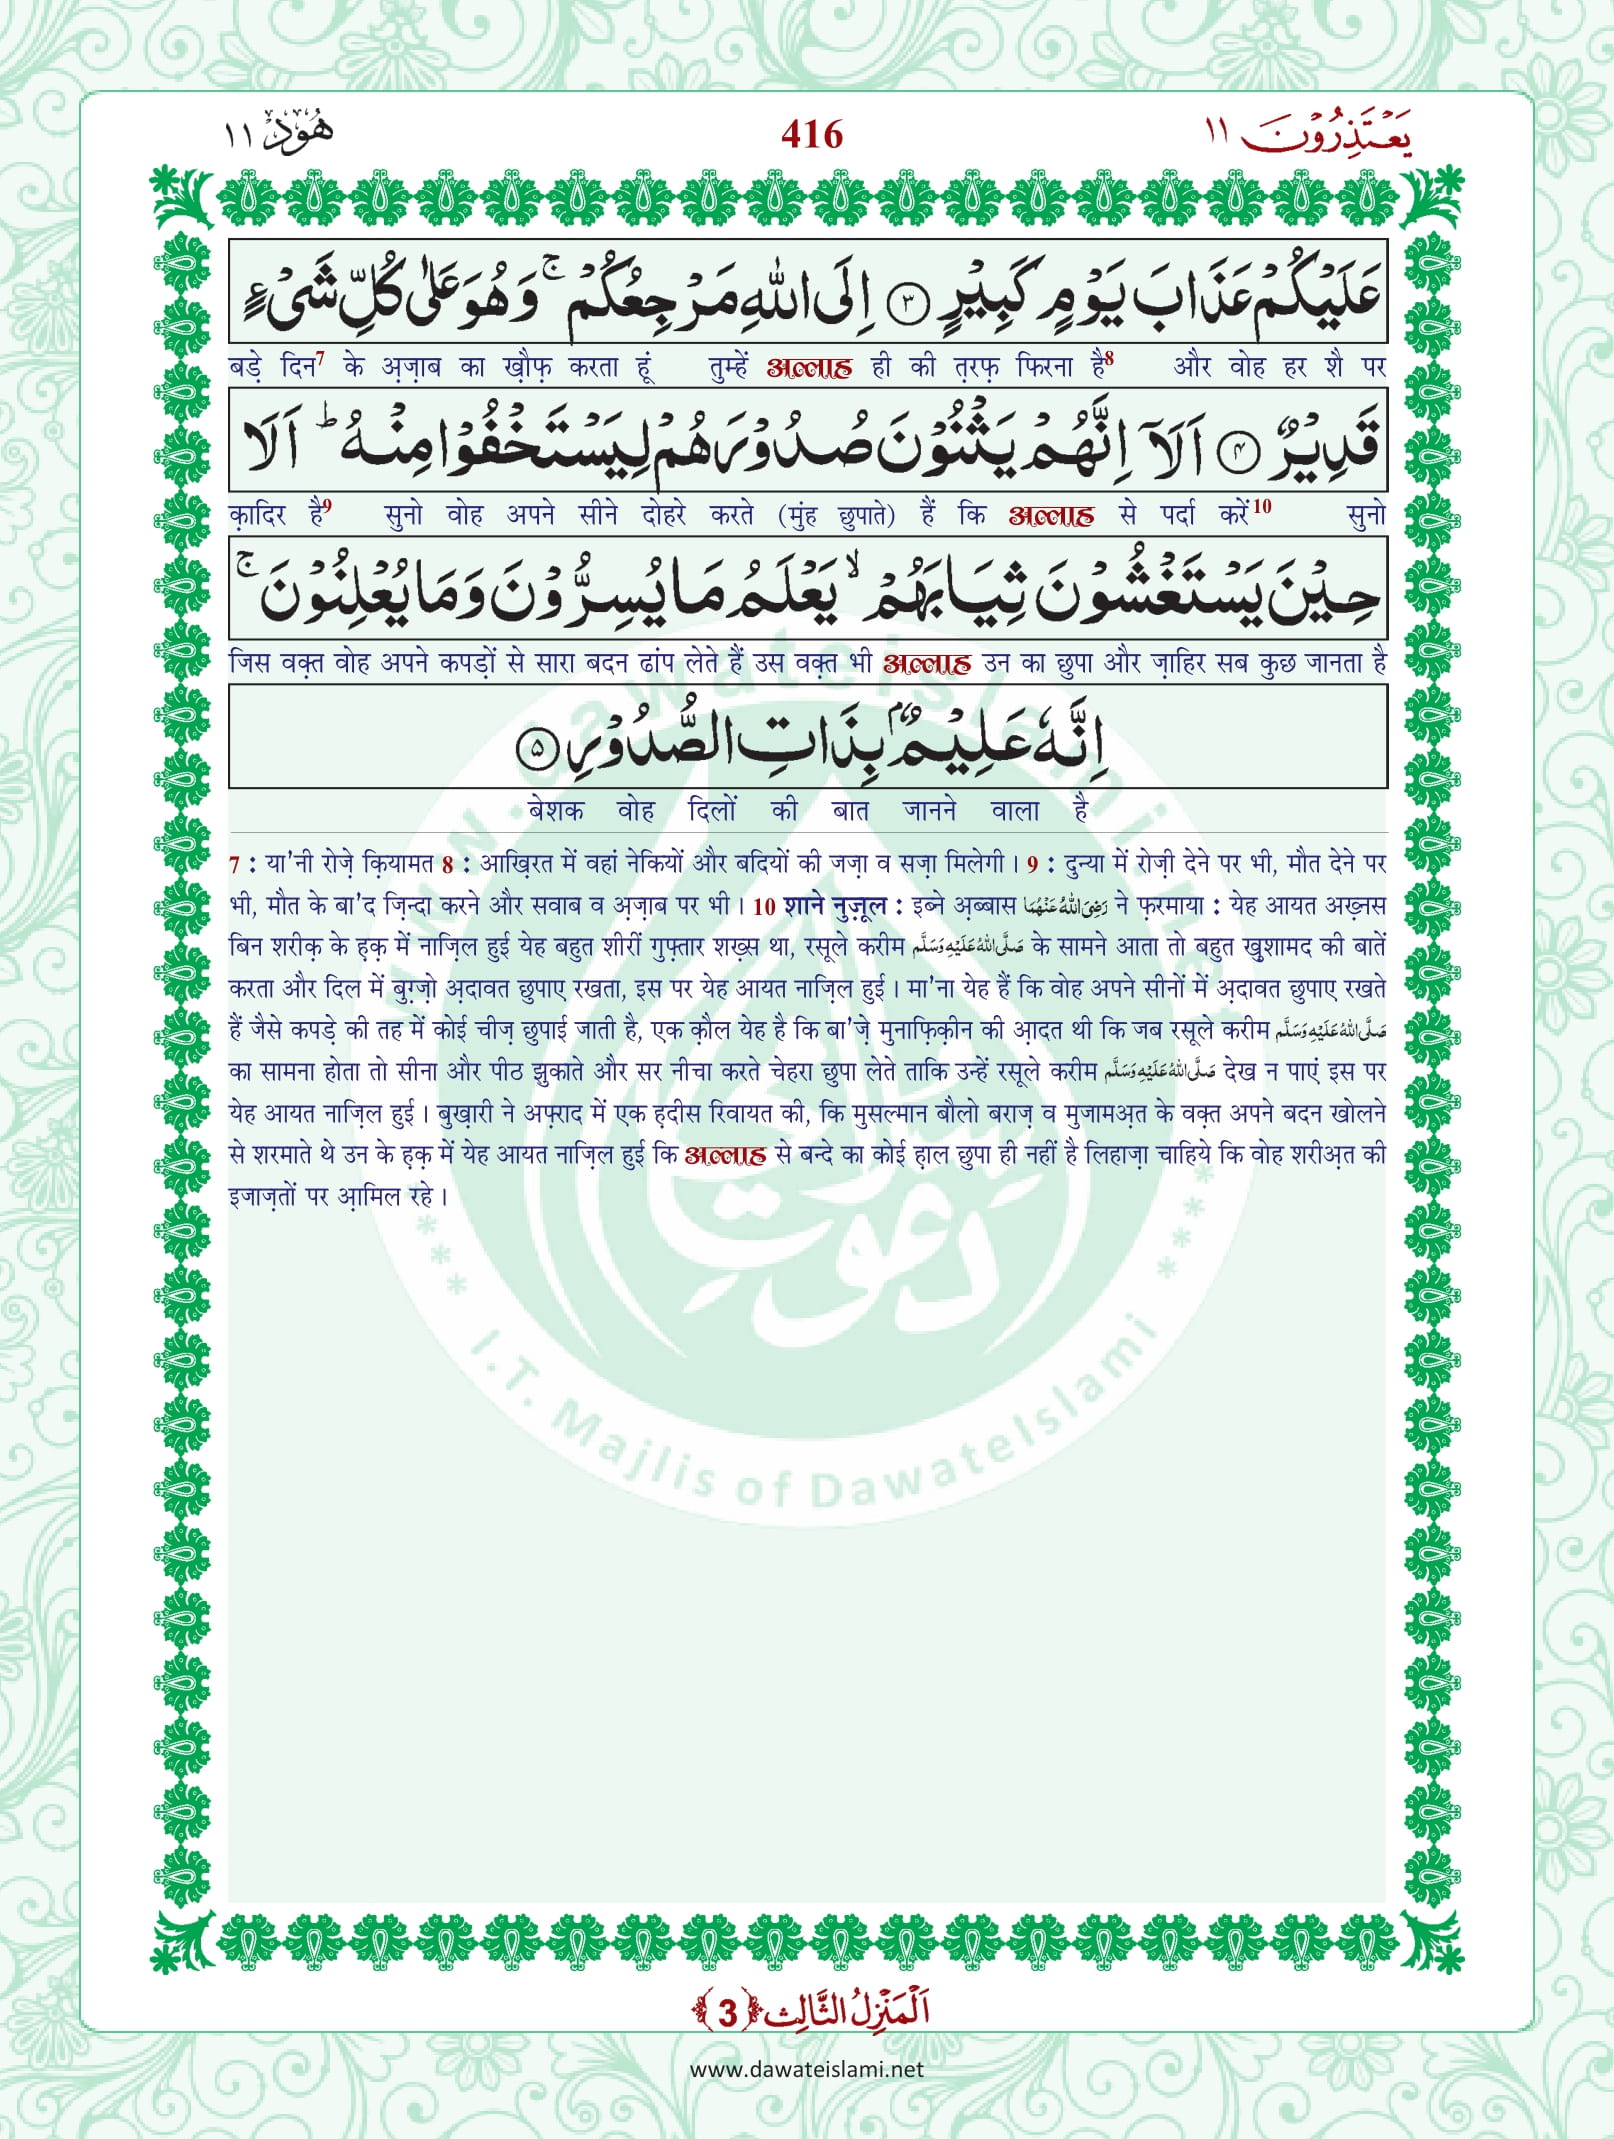 هُوْد ١١ 416 يَعْتَذِرُوْنَ ١١
عَلَيْكُمْ عَذَابَ يَوْمٍ كَبِيْرٍ ﴿٣﴾ اِلَى اللّٰهِ مَرْجِعُكُمْ ۚ وَهُوَ عَلٰى كُلِّ شَىْءٍ
बड़े दिन7 के अ़ज़ाब का ख़ौफ़ करता हूं तुम्हें अल्लाह ही की त़रफ़ फिरना है8 और वोह हर शै पर
قَدِيْرٌ ﴿٤﴾ اَلَآ اِنَّهُمْ يَثْنُوْنَ صُدُوْرَهُمْ لِيَسْتَخْفُوْا مِنْهُ ؕ اَلَا
क़ादिर है9 सुनो वोह अपने सीने दोहरे करते (मुंह छुपाते) हैं कि अल्लाह से पर्दा करें10 सुनो
حِيْنَ يَسْتَغْشُوْنَ ثِيَابَهُمْ ۙ يَعْلَمُ مَا يُسِرُّوْنَ وَمَا يُعْلِنُوْنَ ۚ
जिस वक़्त वोह अपने कपड़ों से सारा बदन ढांप लेते हैं उस वक़्त भी अल्लाह उन का छुपा और ज़ाहिर सब कुछ जानता है
اِنَّهٗ عَلِيْمٌۢ بِذَاتِ الصُّدُوْرِ ﴿٥﴾
बेशक वोह दिलों की बात जानने वाला है
7 : या'नी रोज़े क़ियामत 8 : आख़िरत में वहां नेकियों और बदियों की जज़ा व सज़ा मिलेगी। 9 : दुन्या में रोज़ी देने पर भी, मौत देने पर
भी, मौत के बा'द ज़िन्दा करने और सवाब व अ़ज़ाब पर भी। 10 शाने नुज़ूल : इब्ने अ़ब्बास رَضِىَ اللّٰهُ عَنْهُمَا ने फ़रमाया : येह आयत अख़्नस
बिन शरीक़ के ह़क़ में नाज़िल हुई येह बहुत शीरीं गुफ़्तार शख़्स था, रसूले करीम صَلَّى اللّٰهُ عَلَيْهِ وَسَلَّم के सामने आता तो बहुत ख़ुशामद की बातें
करता और दिल में बुग़्ज़ो अ़दावत छुपाए रखता, इस पर येह आयत नाज़िल हुई। मा'ना येह हैं कि वोह अपने सीनों में अ़दावत छुपाए रखते
हैं जैसे कपड़े की तह में कोई चीज़ छुपाई जाती है, एक क़ौल येह है कि बा'ज़े मुनाफ़िक़ीन की आ़दत थी कि जब रसूले करीम صَلَّى اللّٰهُ عَلَيْهِ وَسَلَّم
का सामना होता तो सीना और पीठ झुकाते और सर नीचा करते चेहरा छुपा लेते ताकि उन्हें रसूले करीम صَلَّى اللّٰهُ عَلَيْهِ وَسَلَّم देख न पाएं इस पर
येह आयत नाज़िल हुई। बुख़ारी ने अफ़्राद में एक ह़दीस रिवायत की, कि मुसल्मान बौलो बराज़ व मुजामअ़त के वक़्त अपने बदन खोलने
से शरमाते थे उन के ह़क़ में येह आयत नाज़िल हुई कि अल्लाह से बन्दे का कोई ह़ाल छुपा ही नहीं है लिहाज़ा चाहिये कि वोह शरीअ़त की
इजाज़तों पर आ़मिल रहे।
www.dawateislami.net
دعوت اسلامی
I.T. Majlis of DawateIslami
اَلْمَنْزِلُ الثَّالِث ﴿3﴾
www.dawateislami.net